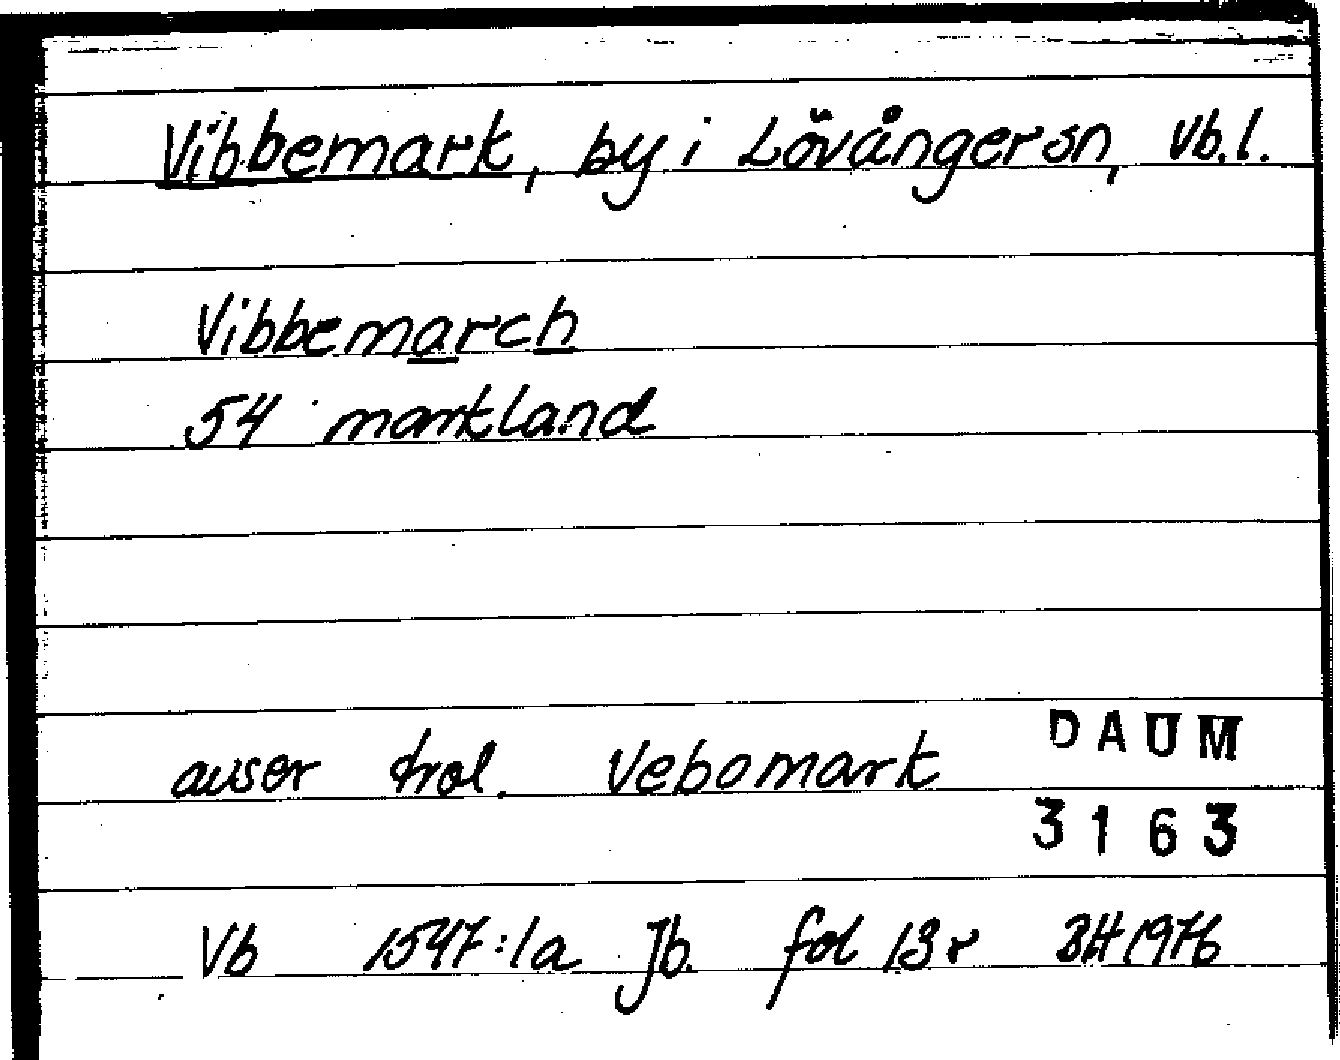 Vibbemark, by i Lövånger sn, Vb.l.
Vibbemarch
54 markland
avser trol. Vebomark
DAUM
3163
Vb 1547:1a Jb. fol 13 r BH 1976